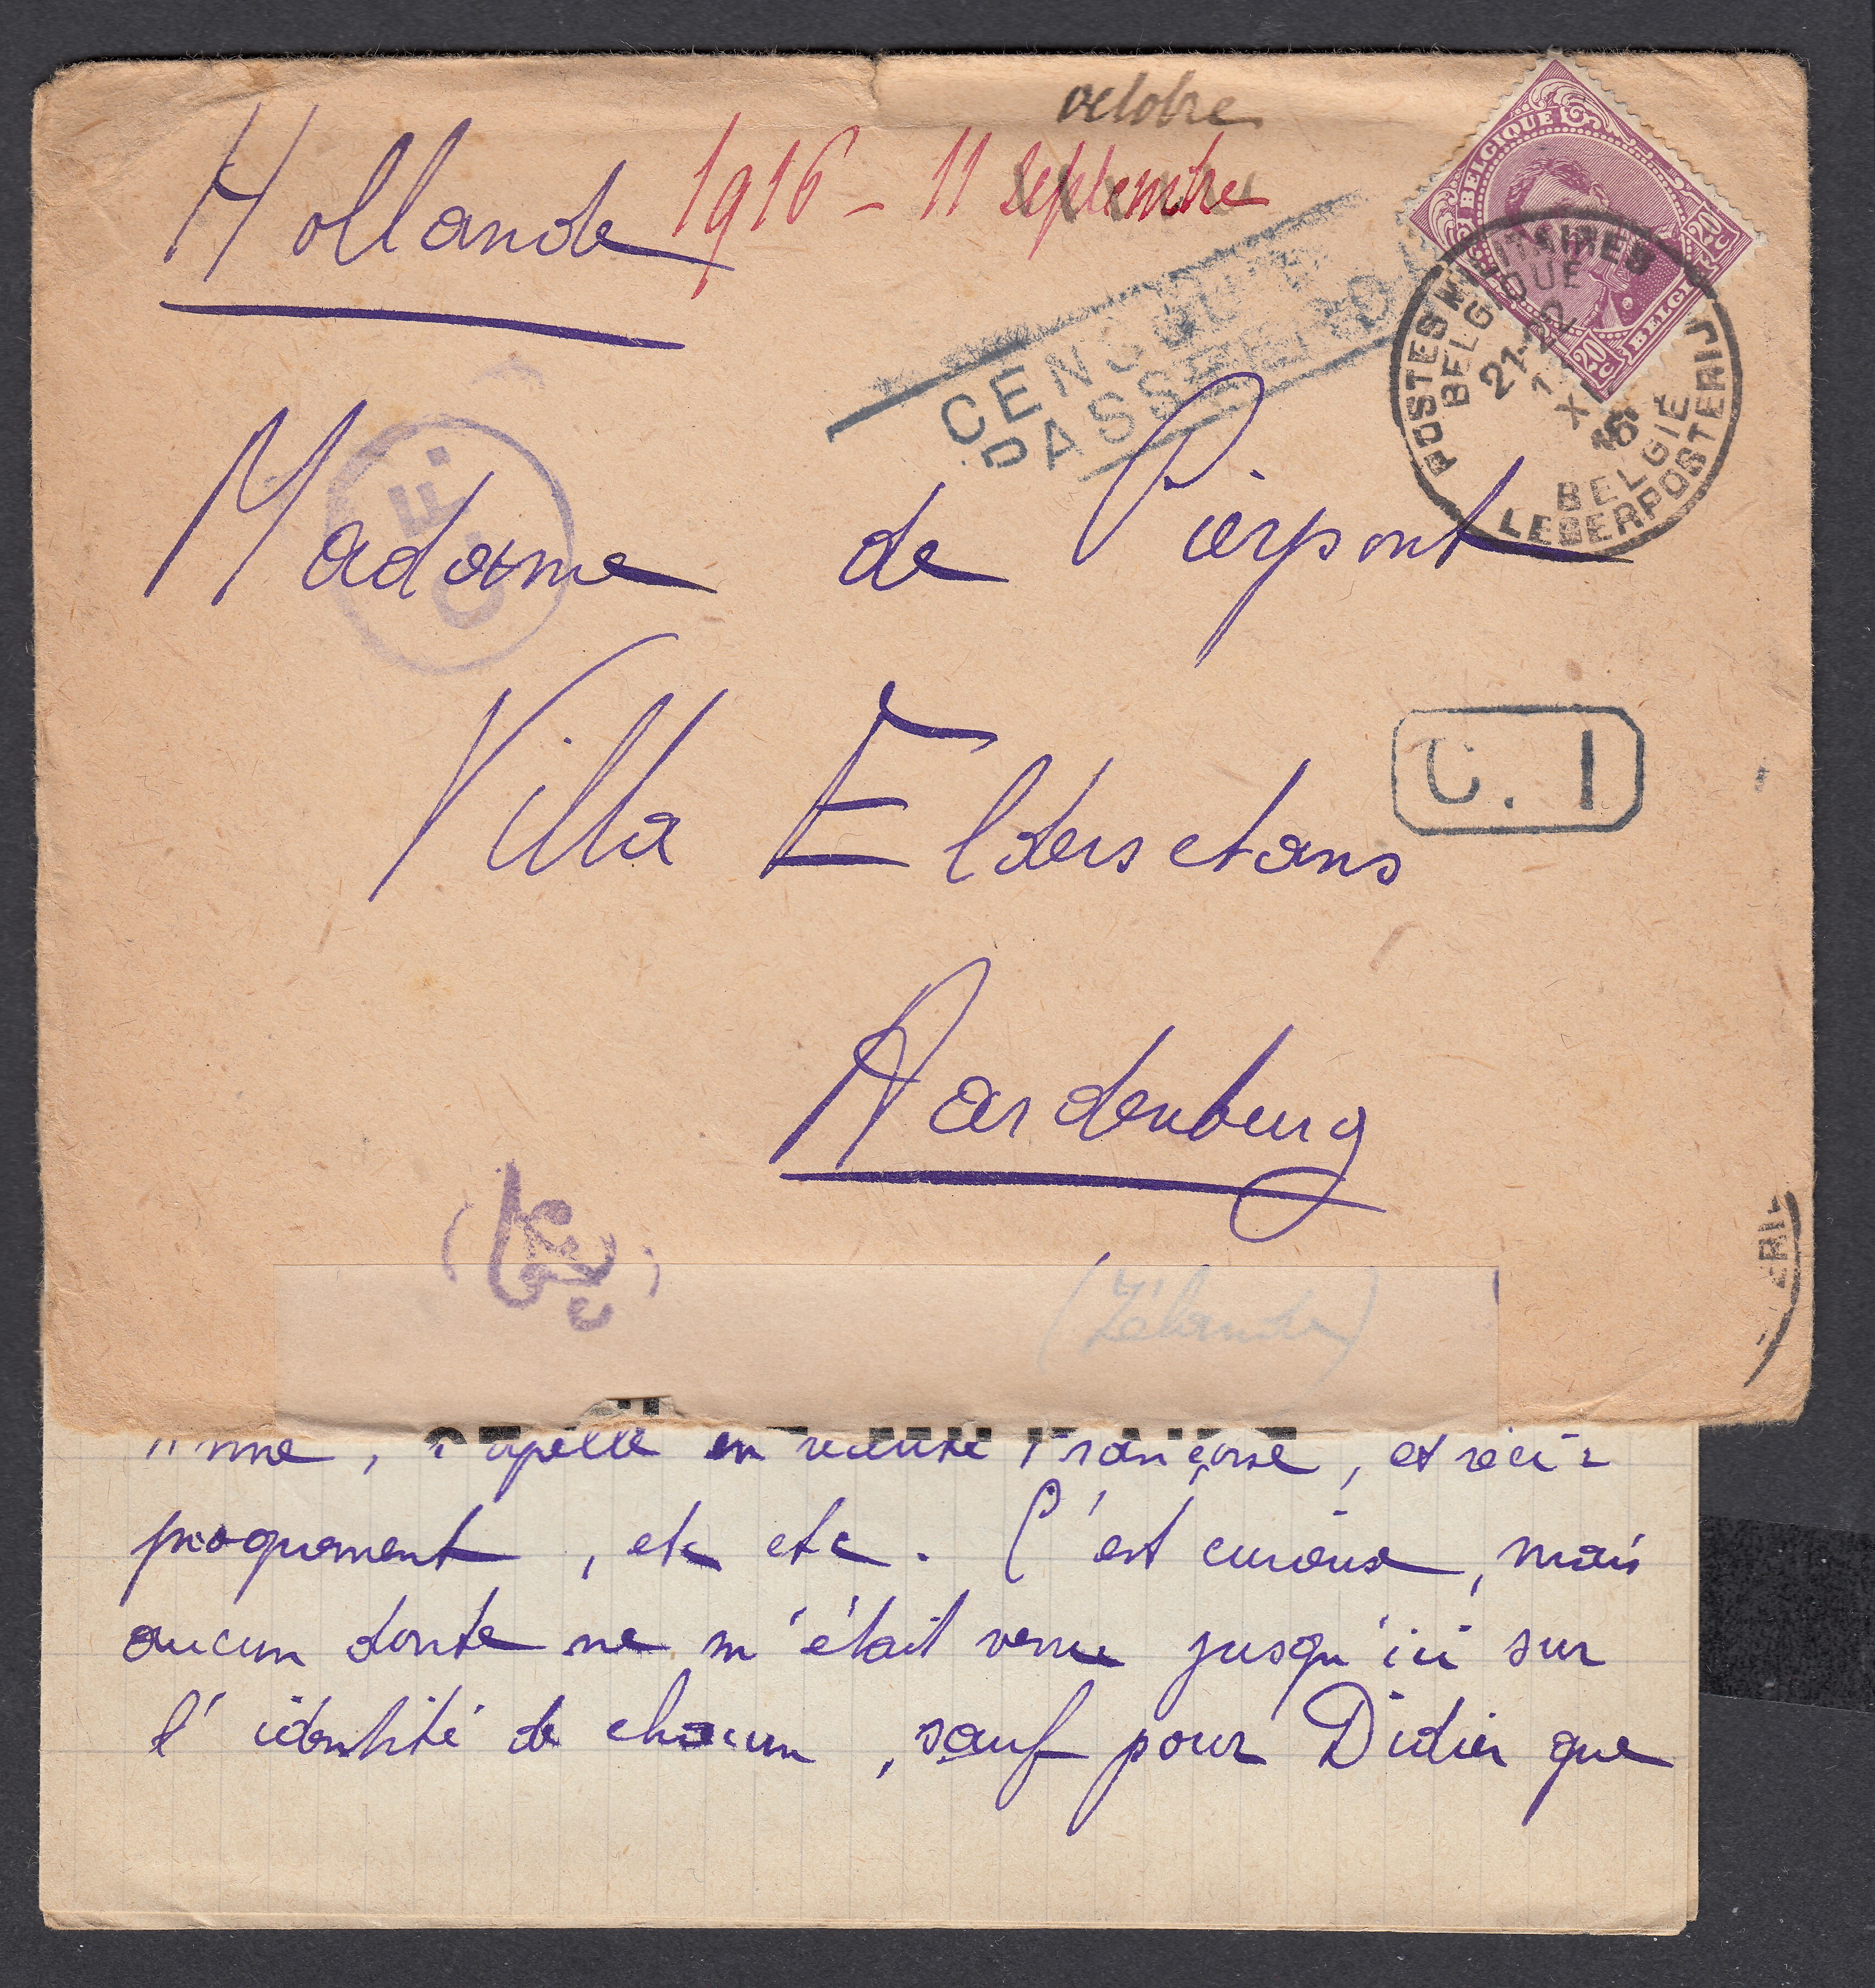 octobre
Hollande 1916 - 11 septembre
BELGIQUE
20 C
20 C
BELGIË
POSTES MILITAIRES
BELGIQUE
21-22
X
16
BELGIË
LEGERPOSTERIJ
CENSUUR
PASSEERD
C.F.
Madame de Pierpont
C. 1
Villa Elderschans
Aardenburg
(Zélande)
ERIJ
, s'apelle en réalité Françoise, et réci-
proquement, etc etc. C'est curieux, mais
aucun doute ne m'était venu jusqu'ici sur
l'identité de chacun, sauf pour Didier que